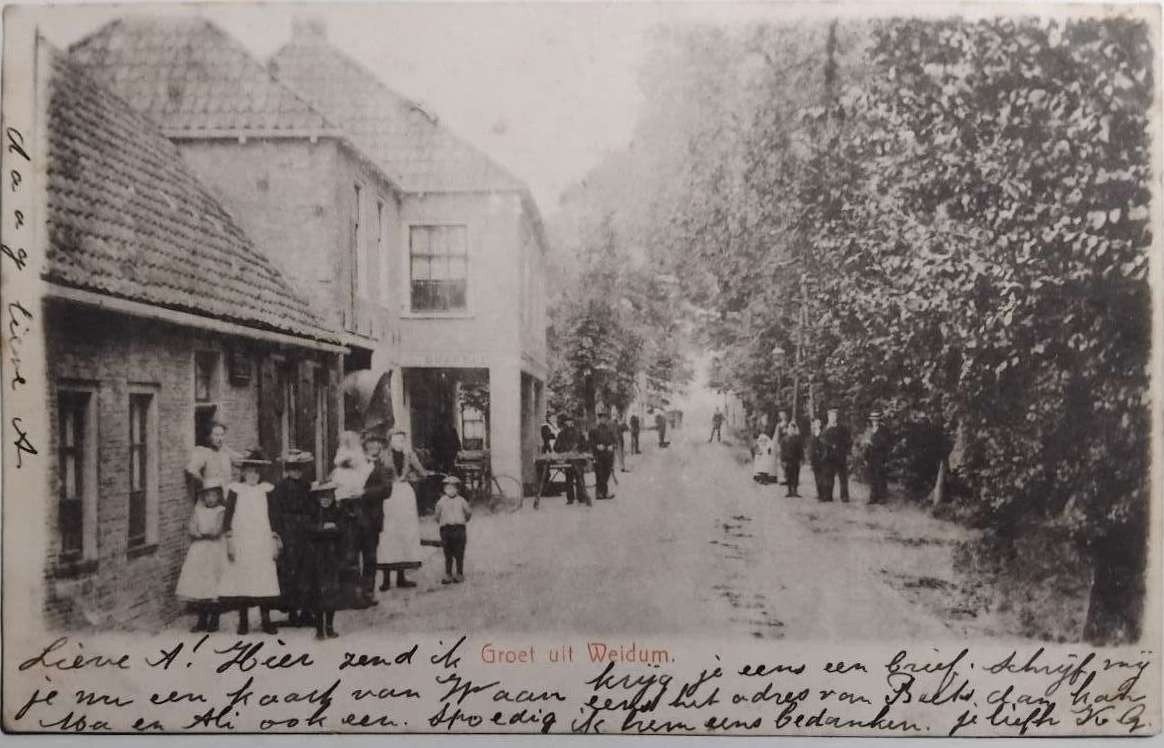 Groet uit Weidum.
Lieve A! Hier zend ik je eens een brief. Schrijf mij
je nu een kaart van Ypaan krijg eens het adres van Baels, dan kan
Ma en Ali ook een. Spoedig ik hem eens bedanken. je liefh K. G.
daag lieve A